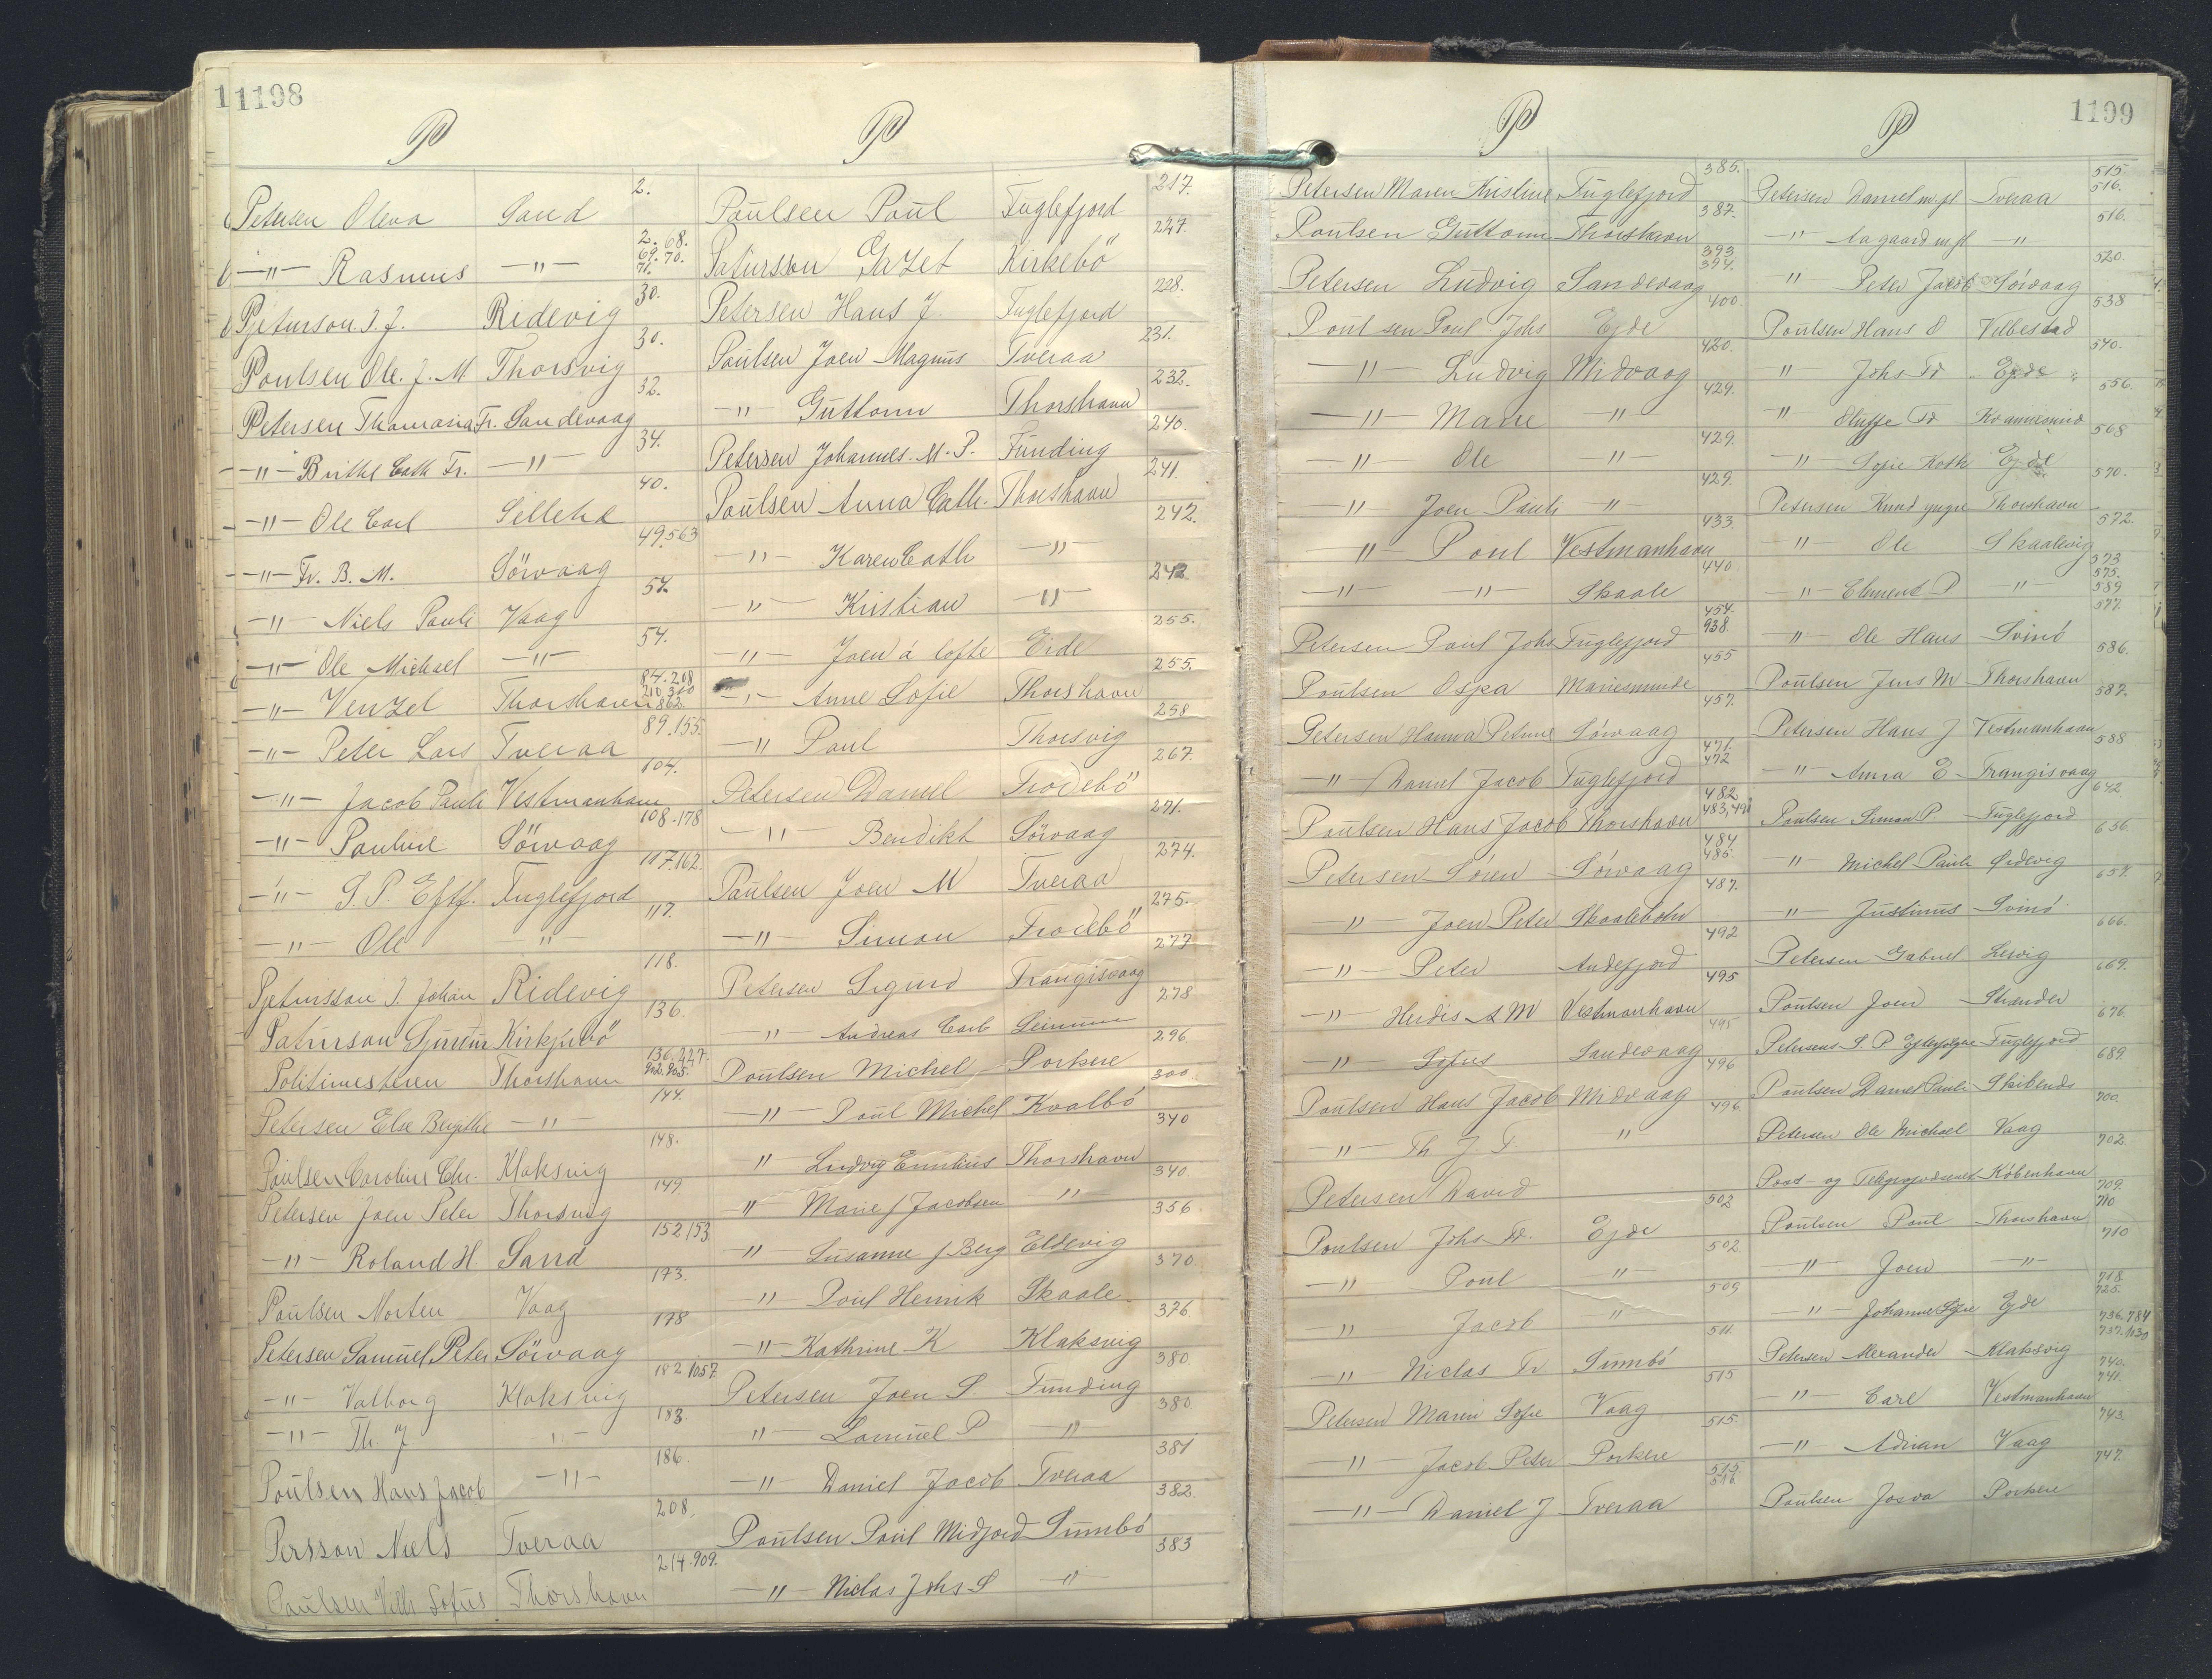 11198
P P
Petersen Oleva Sand 2.
—"— Rasmus —"— 2. 68. 69. 70. 71.
Pjeturson J. J. Ridevig 30.
Poulsen Ole. J. M Thorsvig 30.
Petersen Thomasia Fr. Sandevaag 32.
—"— Birthe Cath Fr. —"— 34.
—"— Ole Carl 40.
—"— Fr. B. M. Sörvaag 49. 563
—"— Niels Pauli Vaag 54.
—"— Ole Michael —"— 54.
—"— Venzel Thorshavn 84. 208 210. 310 862.
—"— Peter Lars Tveraa 89. 155.
—"— Jacob Pauli Vestmanhavn 104.
—"— Pauline Sörvaag 108. 178
—"— S. P. Eftf. Fuglefjord 117. 162.
—"— Ole —"— 117.
Pjetursson J. Johan Ridevig 118.
Patursson Sjurdur Kirkjubö 136.
Politimesteren Thorshavn 136. 227. 902. 905.
Petersen Else Bergithe —"— 144.
Poulsen Caroline Chr. Klaksvig 148.
Petersen Joen Peter Thorsvig 149
—"— Roland H Sand 152 153
Poulsen Morten Vaag 173.
Petersen Samuel Peter Sörvaag 178
—"— Valborg Klaksvig 182 1057.
—"— Th. J —"— 183.
Poulsen Hans Jacob —"— 186.
Persson Niels Tveraa 208.
Poulsen Vilh Sofus Thorshavn 214. 909.
Poulsen Poul Fuglefjord 217.
Patursson Gazet Kirkebö 227.
Petersen Hans J. Fuglefjord 228.
Poulsen Joen Magnus Tveraa 231.
—"— Guttorm Thorshavn 232.
Petersen Johannes. M. P. Funding 240.
Poulsen Anna Cath. Thorshavn 241.
—"— Karen Cath —"— 242.
—"— Kristian —"— 242
—"— Joen á lofte Eide 255.
—"— Anne Sofie Thorshavn 255.
—"— Paul Thorsvig 258
Petersen Daniel Frodebö 267.
—"— Bendikt Sörvaag 271.
Poulsen Joen M Tveraa 274.
—"— Simon Frodebö 275.
Petersen Sigurd Trangisvaag 277
" Andreas Carl 278
Poulsen Michel Porkere 296.
—"— Poul Michel Kvalbö 300.
" Ludvig Emilius Thorshavn 340
" Marie f Jacobsen " 340
" Susanne f Berg Eldevig 356
" Poul Henrik Skaale 370
—"— Kathrine K Klaksvig 376.
Petersen Joen S. Funding 380
" Samuel P " 380.
—"— Daniel Jacob Tveraa 381
Poulsen Poul Midjord Sumbö 382.
—"— Niclas Johs S " 383
1199
P P
Petersen Maren Kristine Fuglefjord 385.
Poulsen Guttorm Thorshavn 387.
Petersen Ludvig Sandevaag 393 394.
Poulsen Poul Johs Ejde 400.
—"— Ludvig Midvaag 420.
—"— Marie " 429.
" Ole " 429.
" Joen Pauli " 429.
—"— Poul Vestmanhavn 433.
—"— —"— Skaale 440
Petersen Poul Johs Fuglefjord 454. 938.
Poulsen Marienmunde 455
Petersen Hanna Petrine Sörvaag 457.
" Daniel Jacob Fuglefjord 471. 472
Poulsen Hans Jacob Thorshavn 482 483, 491
Petersen Sören Sörvaag 484 485.
" Joen Peter 487.
—"— Peter Andefjord 492
—"— Herdis A M Vestmanhavn 495
" Sofus Sandevaag 495
Poulsen Hans Jacob Midvaag 496
—"— Th J F " 496
Petersen David
Poulsen Johs Fr. Ejde 502
—"— Poul " 502.
—"— Jacob " 509
—"— Niclas Fr Sumbö 511.
Petersen Maren Sofie Vaag 515
—"— Jacob Peter Porkere 515.
—"— Daniel J Tveraa 515. 516
Petersen Daniel m. fl Tveraa 515 516.
—"— Aagaard m fl —"— 516.
" Peter Jacob Sörvaag 520.
Poulsen Hans D Velbestad 538
" Johs Fr Ejde 540.
" Fr 556.
—"— Sofie Kath Ejde 568
Petersen Knud yngre Thorshavn 570.
—"— Ole Skaalevig 572.
—"— Clement P " 573 575. 589
—"— Ole Hans Svinö 577
Poulsen Jens M Thorshavn 586.
Petersen Hans J Vestmanhavn 587.
—"— Anna E Trangisvaag 588
Poulsen Simon P Fuglefjord 642.
" Michel Pauli 656
—"— Justinus Svinö 657.
Petersen Gabriel 666.
Poulsen Joen Strander 669.
Petersens S. P Efterfølgere Fuglefjord 676.
Poulsen Daniel Pauli 689.
Petersen Ole Michael Vaag 700.
Post- og Telegrafvæsenet København 702.
Poulsen Poul Thorshavn 709. 710
—"— Joen —"— 710
—"— Johanne Sofie Ejde 718. 725.
Petersen Alexander Klaksvig 736. 784 737. 1130
—"— Carl Vestmanhavn 740. 741.
—"— Adrian Vaag 743.
Poulsen Josva Porkere 747.